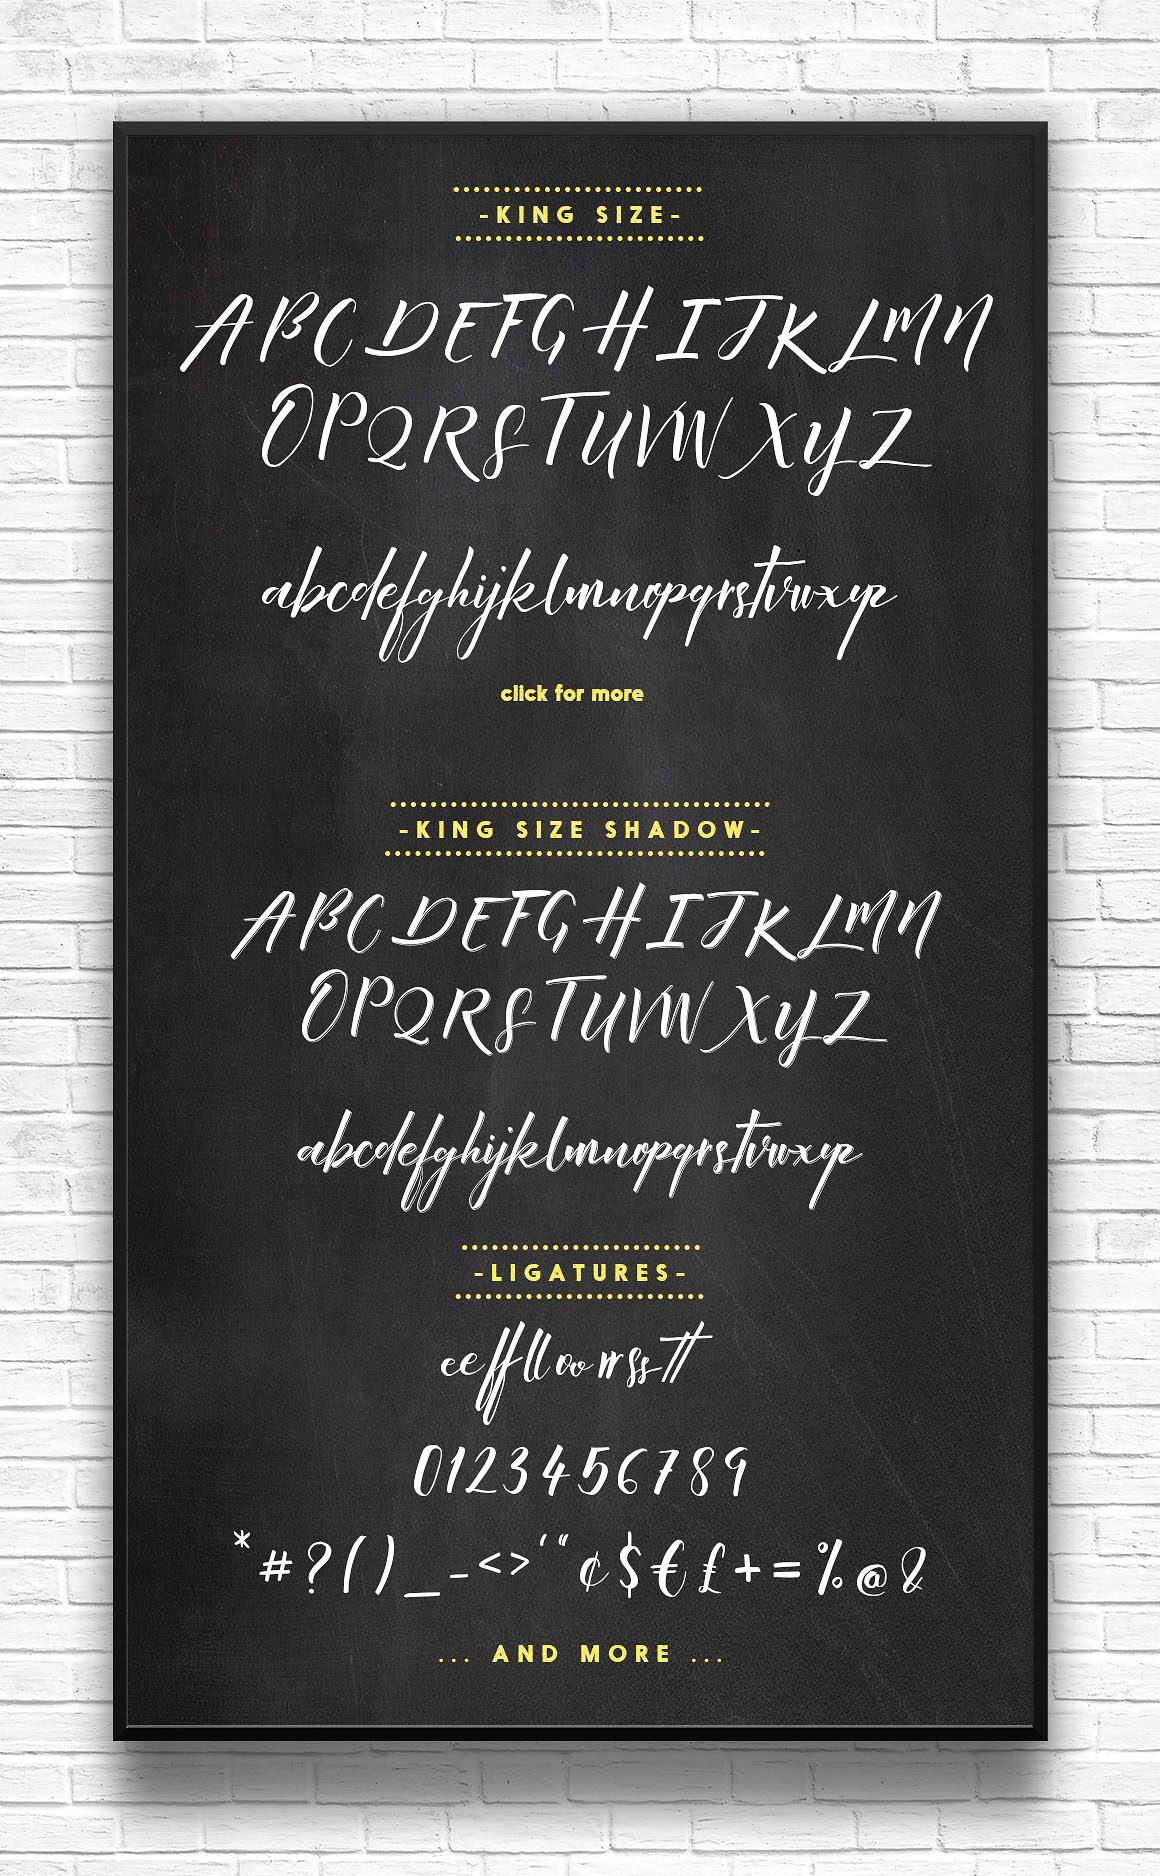 -KING SIZE-
ABCDEFGHIJKLMN
OPQRSTUVWXYZ
abcdefghijklmnopqrstuvwxyz
click for more
-KING SIZE SHADOW-
ABCDEFGHIJKLMN
OPQRSTUVWXYZ
abcdefghijklmnopqrstuvwxyz
-LIGATURES-
ee ff ll oo rr ss tt
0123456789
*#?()_-<>'"¢$€£+=%@&
... AND MORE ...